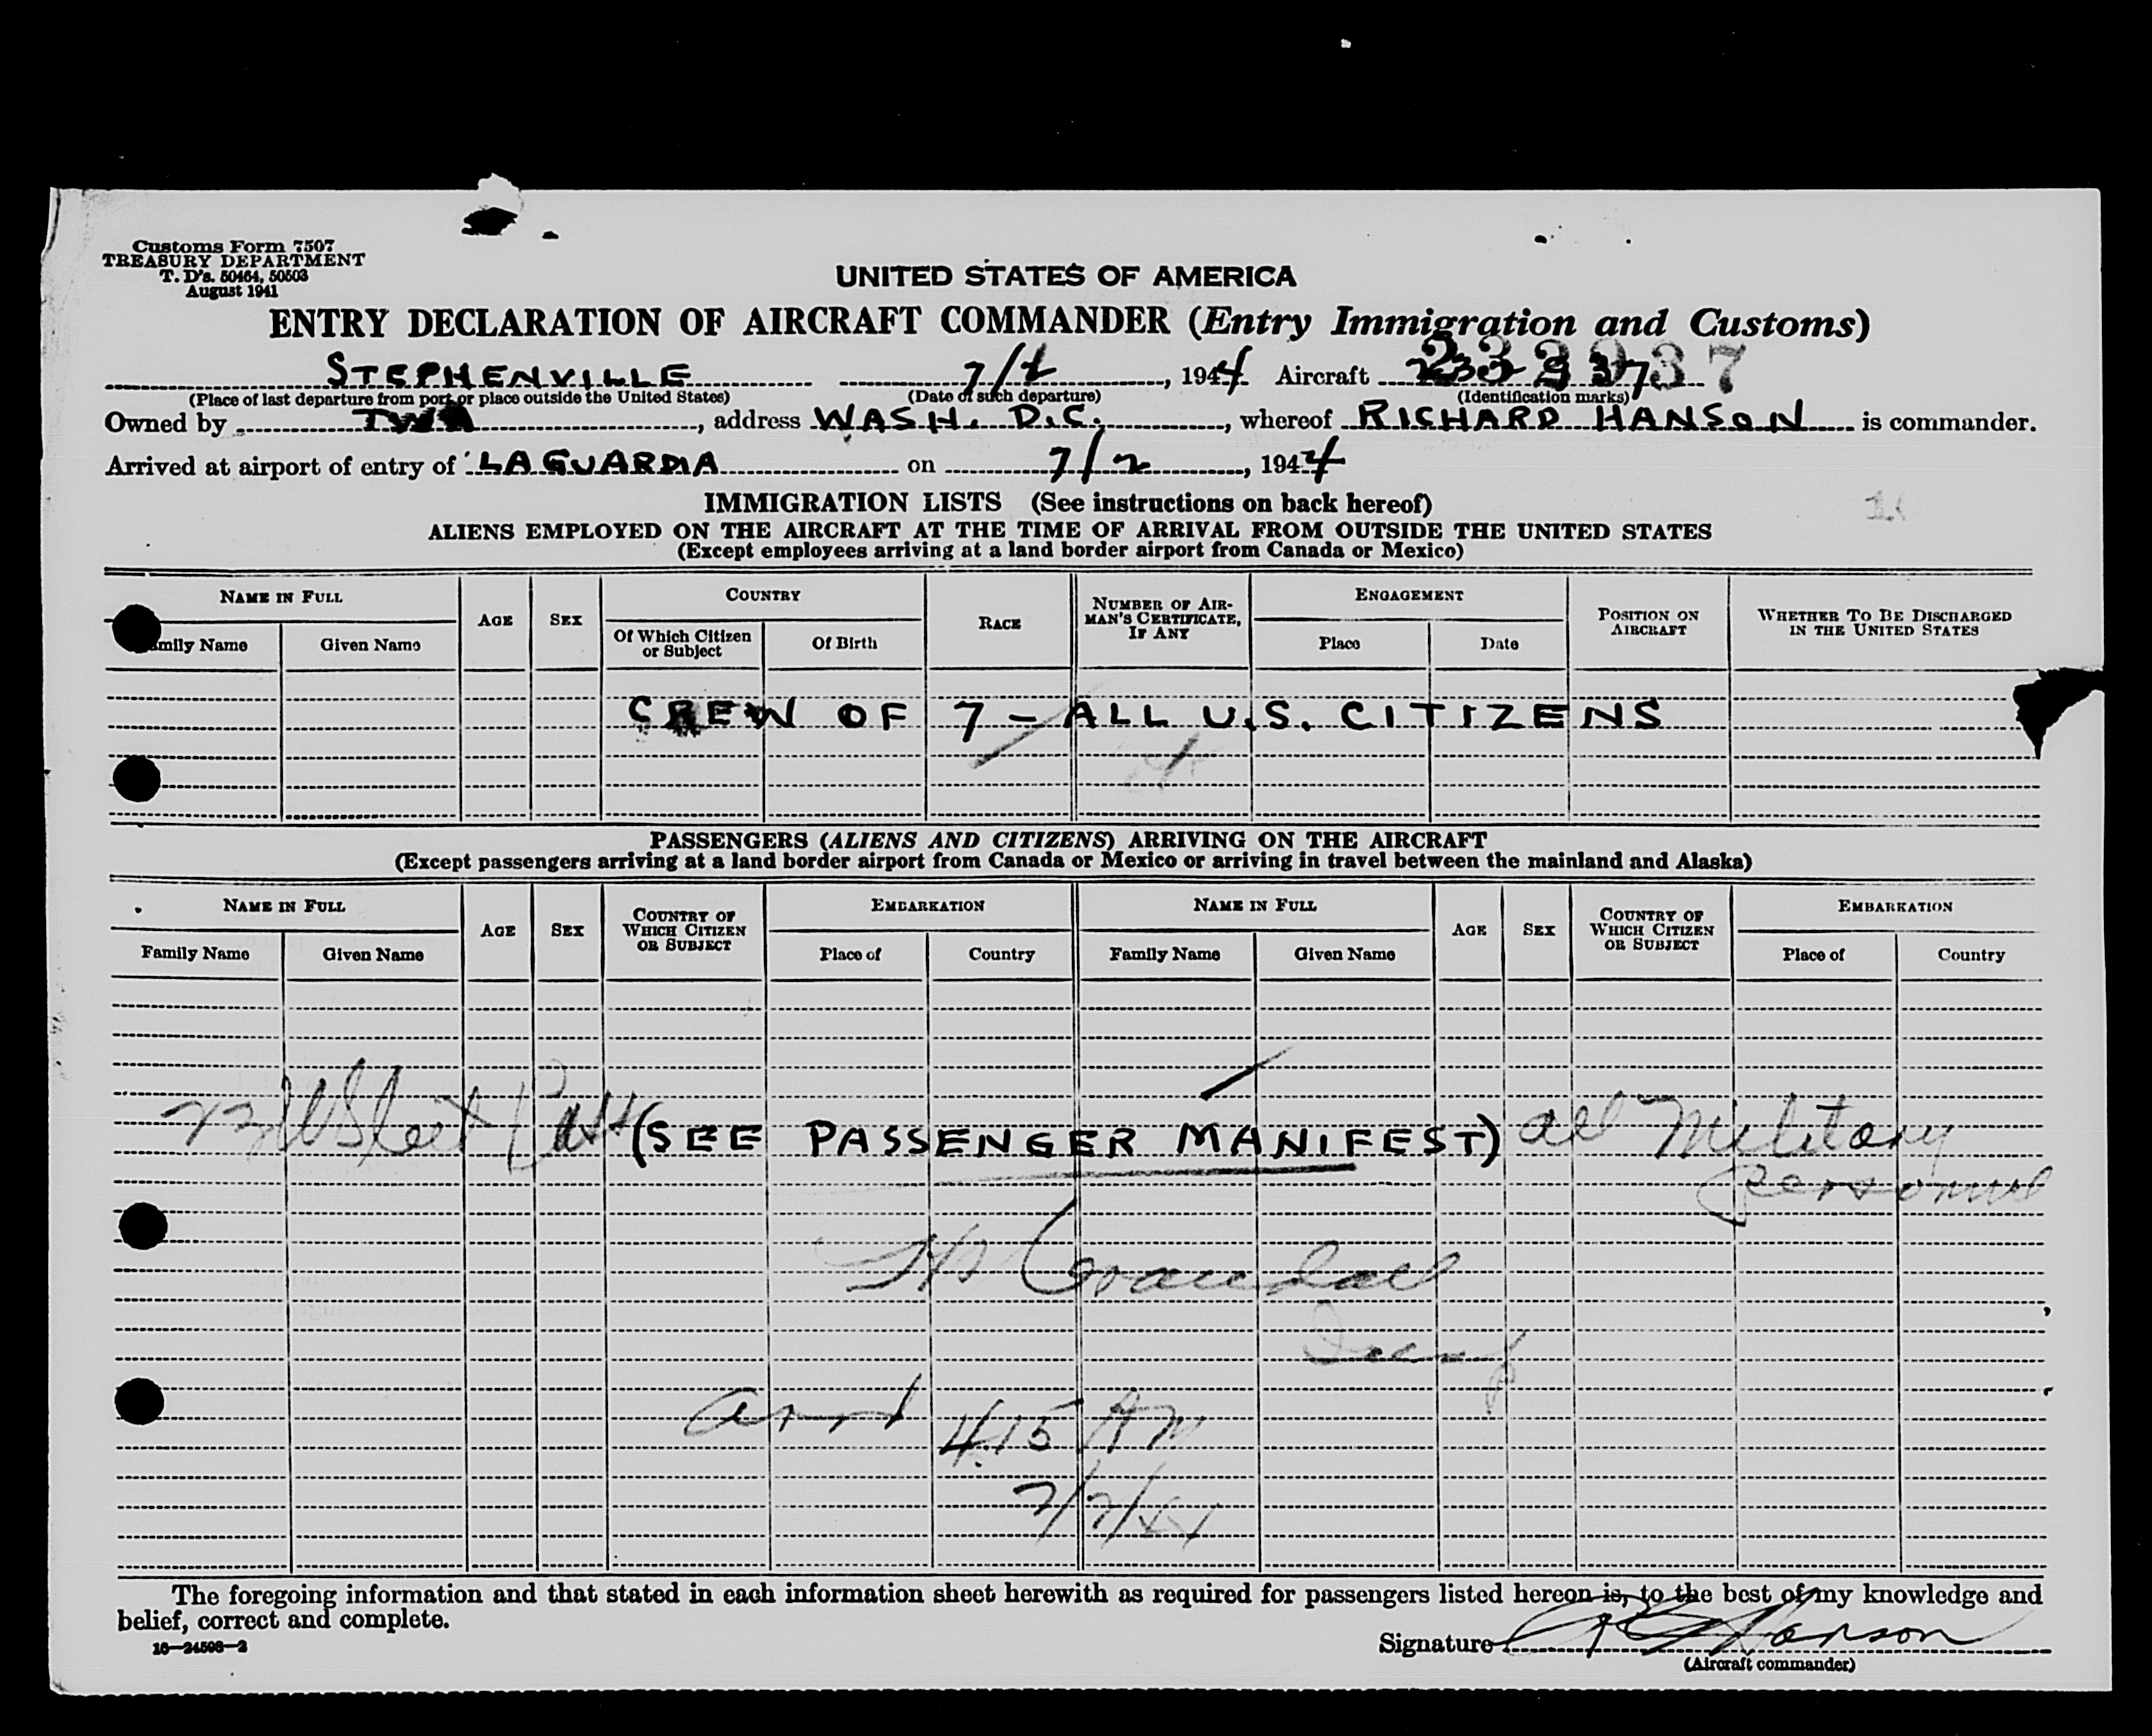 Customs Form 7507
TREASURY DEPARTMENT
T. D's. 50464, 50503
August 1941
UNITED STATES OF AMERICA
ENTRY DECLARATION OF AIRCRAFT COMMANDER (Entry Immigration and Customs)
STEPHENVILLE 7/2, 1944 Aircraft
(Place of last departure from port or place outside the United States) (Date of such departure) (Identification marks)
Owned by TWA, address WASH. D.C., whereof RICHARD HANSON is commander.
Arrived at airport of entry of LAGUARDIA on 7/2, 1944
IMMIGRATION LISTS (See instructions on back hereof)
ALIENS EMPLOYED ON THE AIRCRAFT AT THE TIME OF ARRIVAL FROM OUTSIDE THE UNITED STATES
(Except employees arriving at a land border airport from Canada or Mexico)
NAME IN FULL AGE SEX COUNTRY RACE NUMBER OF AIRMAN'S CERTIFICATE, IF ANY ENGAGEMENT POSITION ON AIRCRAFT WHETHER TO BE DISCHARGED IN THE UNITED STATES
mily Name Given Name Of Which Citizen or Subject Of Birth Place Date
CREW OF 7 - ALL U.S. CITIZENS
PASSENGERS (ALIENS AND CITIZENS) ARRIVING ON THE AIRCRAFT
(Except passengers arriving at a land border airport from Canada or Mexico or arriving in travel between the mainland and Alaska)
NAME IN FULL AGE SEX COUNTRY OF WHICH CITIZEN OR SUBJECT EMBARKATION NAME IN FULL AGE SEX COUNTRY OF WHICH CITIZEN OR SUBJECT EMBARKATION
Family Name Given Name Place of Country Family Name Given Name Place of Country
(SEE PASSENGER MANIFEST) all Military
personnel
Crandall
arrd 4:15 AM
7/2/44
The foregoing information and that stated in each information sheet herewith as required for passengers listed hereon is, to the best of my knowledge and
belief, correct and complete.
16—24598—2
Signature R Hanson
(Aircraft commander)